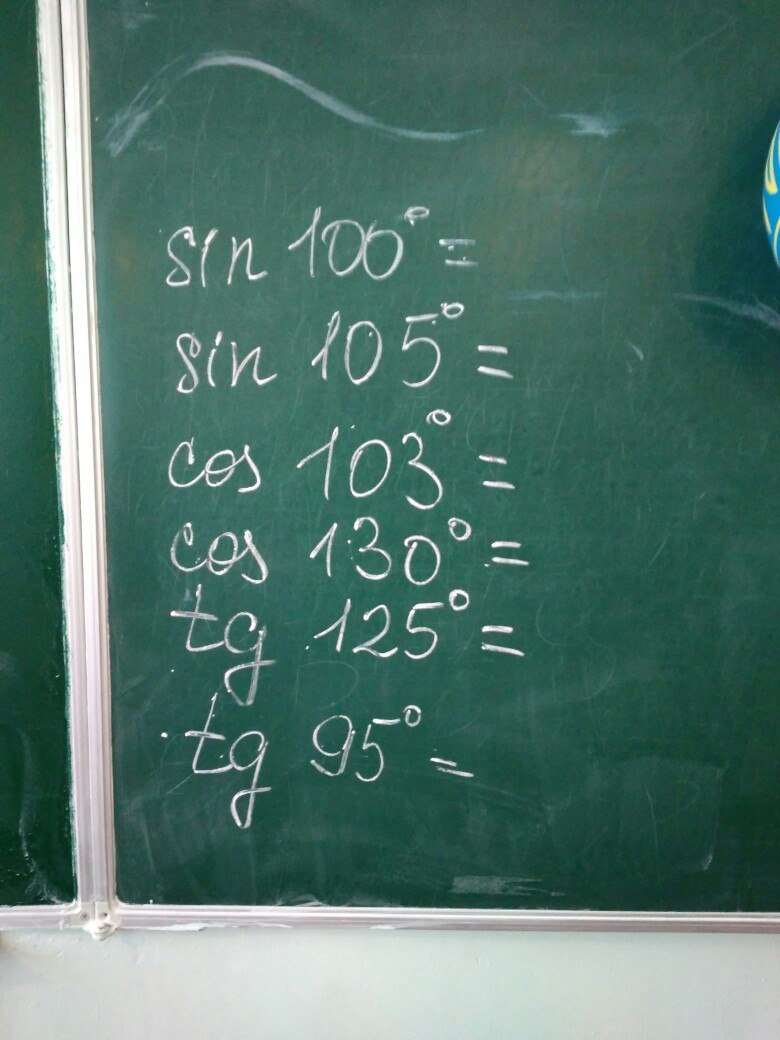 sin 100° =
sin 105° =
cos 103° =
cos 130° =
tg 125° =
tg 95° =